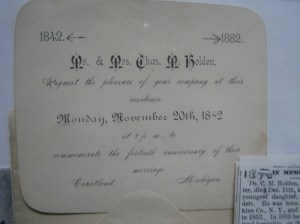 1842. 1882.
Mr. & Mrs. Chas. M. Holden.
Request the pleasure of your company at their
residence
Monday, November 20th, 1882
at 8 p.m. to
commemorate the fortieth anniversary of their
marriage
Courtland, Michigan
IN MEMO
Dr. C. M. Holden,
ter, died Dec. 15th,
youngest daughter,
ders. He was born
kins Co., N. Y., and
in 1852. In 1859 he